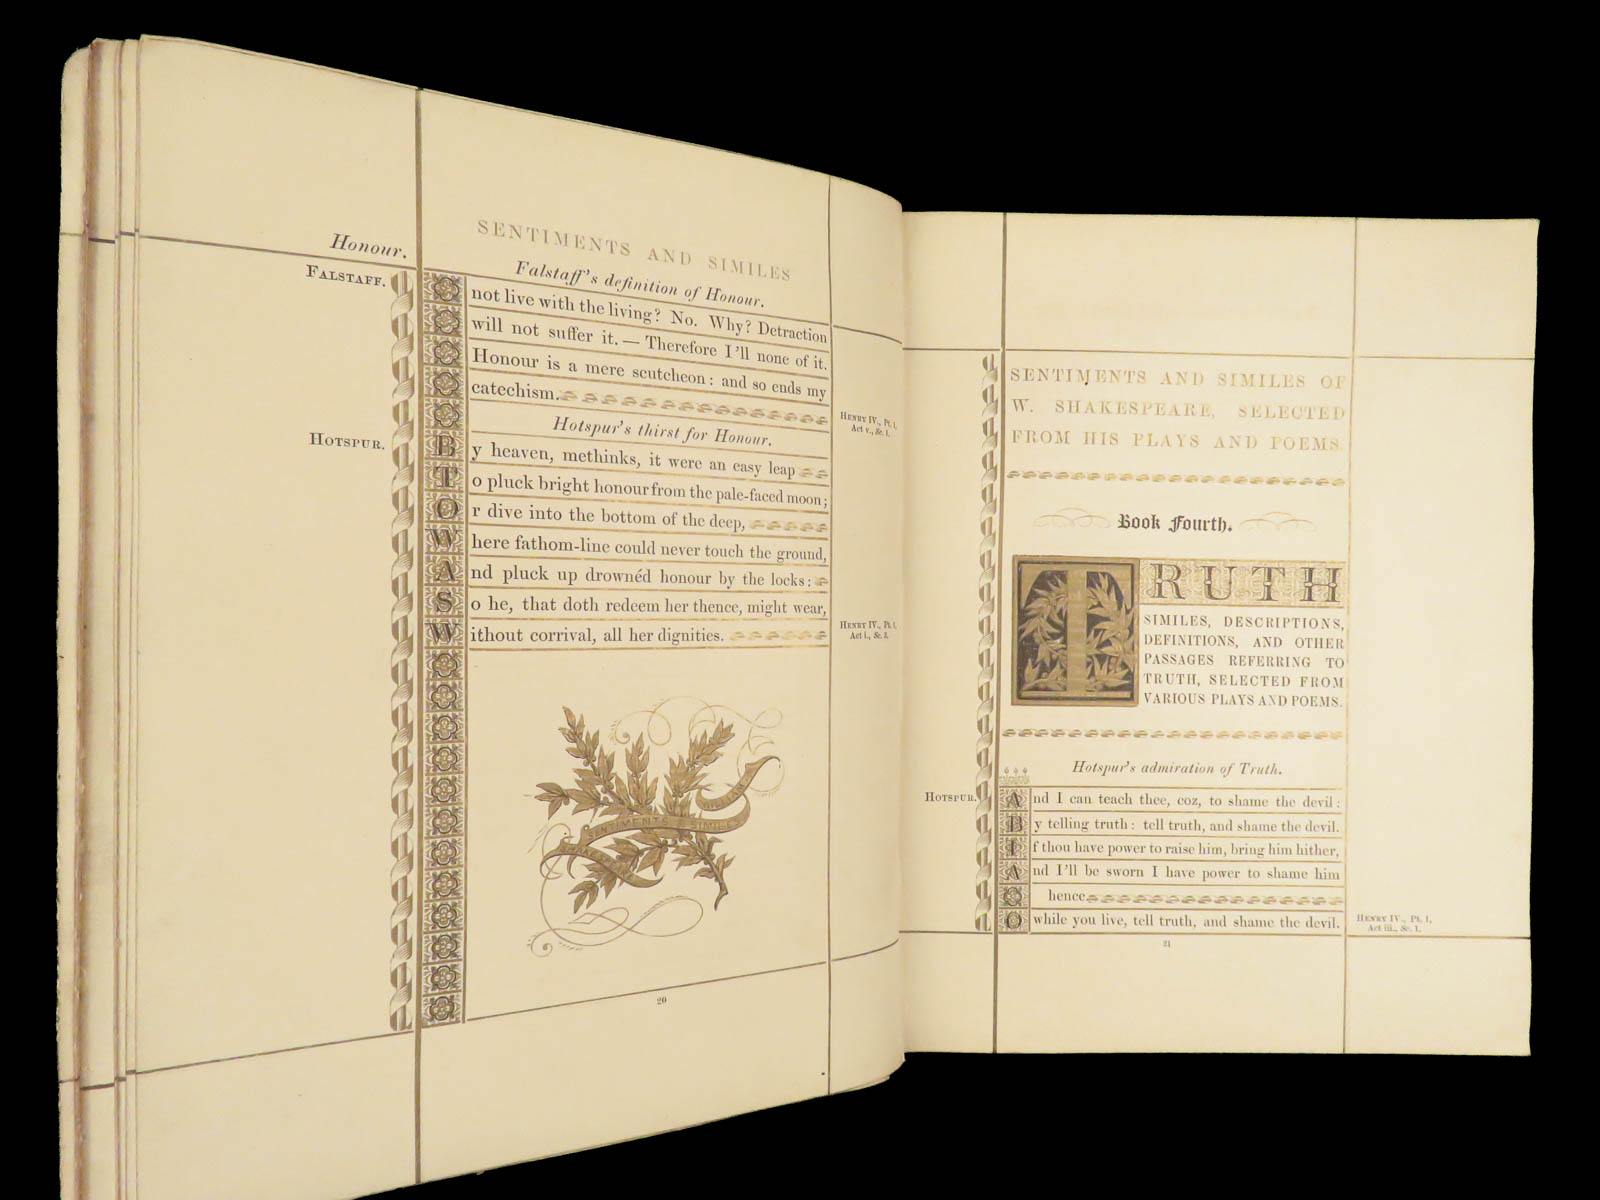 Honour.
SENTIMENTS AND SIMILES
FALSTAFF.
Falstaff's definition of Honour.
not live with the living? No. Why? Detraction
will not suffer it. — Therefore I'll none of it.
Honour is a mere scutcheon: and so ends my
catechism.
HENRY IV., Pt. 1,
Act v., Sc. 1.
Hotspur's thirst for Honour.
HOTSPUR.
By heaven, methinks, it were an easy leap
To pluck bright honour from the pale-faced moon;
Or dive into the bottom of the deep,
Where fathom-line could never touch the ground,
And pluck up drownéd honour by the locks:
So he, that doth redeem her thence, might wear,
Without corrival, all her dignities.
HENRY IV., Pt. 1,
Act i., Sc. 3.
WILLIAM
SENTIMENTS & SIMILES
20
SENTIMENTS AND SIMILES OF
W. SHAKESPEARE, SELECTED
FROM HIS PLAYS AND POEMS.
Book Fourth.
TRUTH
SIMILES, DESCRIPTIONS,
DEFINITIONS, AND OTHER
PASSAGES REFERRING TO
TRUTH, SELECTED FROM
VARIOUS PLAYS AND POEMS.
Hotspur's admiration of Truth.
HOTSPUR.
And I can teach thee, coz, to shame the devil:
By telling truth: tell truth, and shame the devil.
If thou have power to raise him, bring him hither,
And I'll be sworn I have power to shame him
hence.
O while you live, tell truth, and shame the devil.
HENRY IV., Pt. 1,
Act iii., Sc. 1.
21